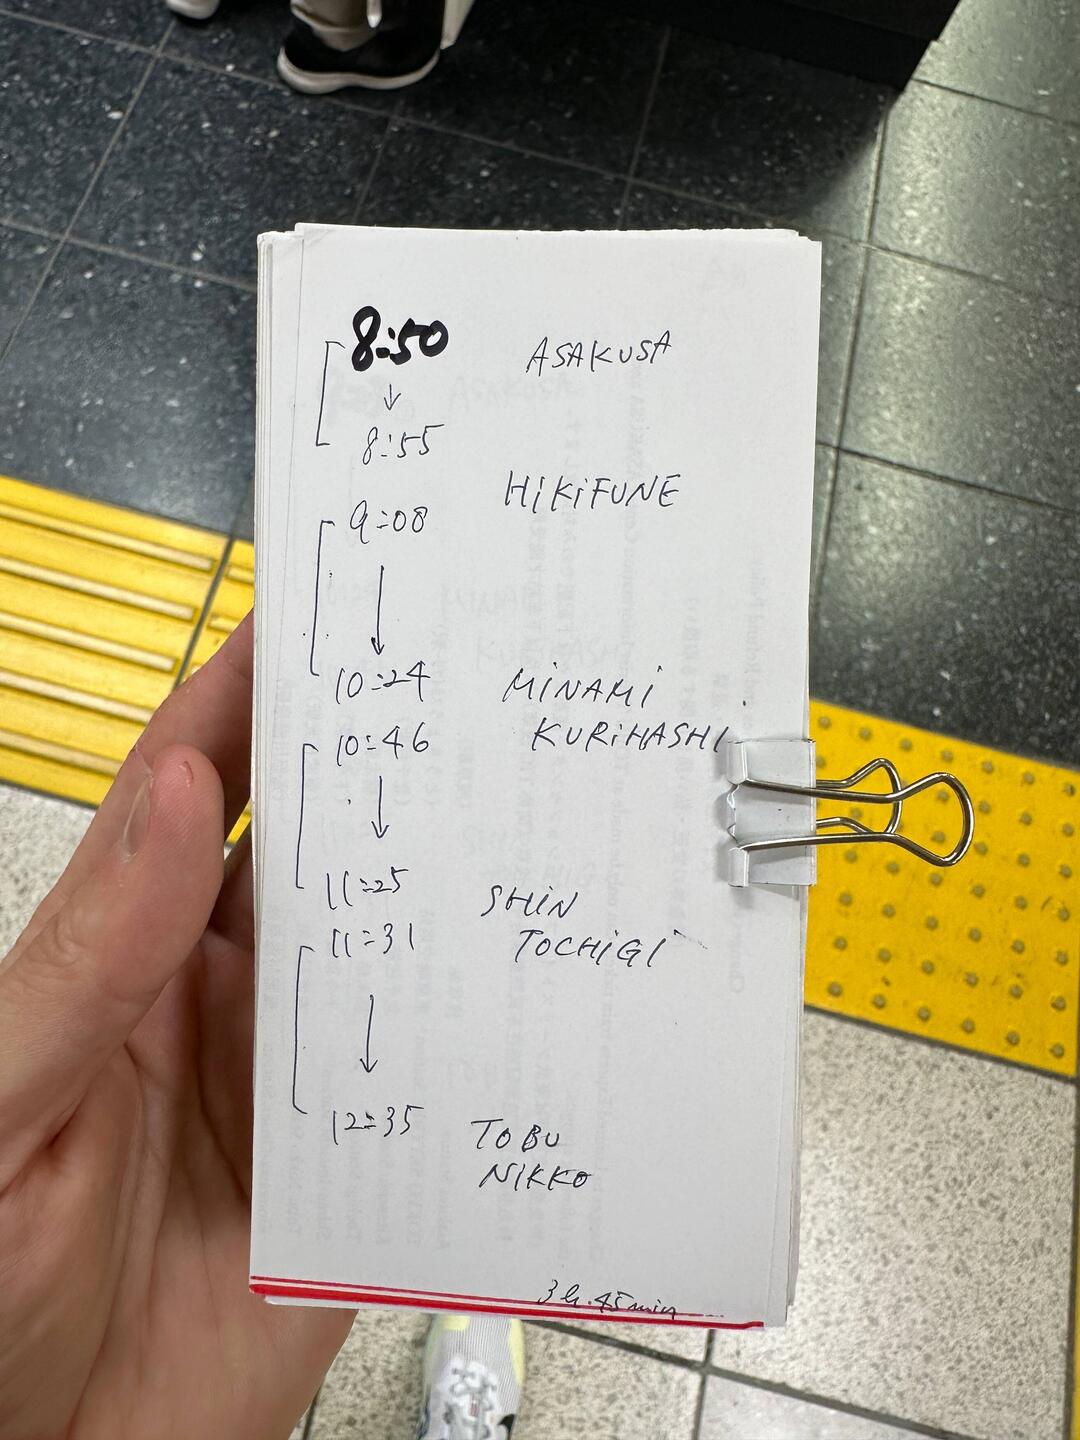 8:50 ASAKUSA
↓
8:55
HiKiFUNE
9:08
↓
10:24 MiNAMi
10:46 KURiHASHI
↓
11:25 SHiN
11:31 TOCHiGi
↓
12:35 TOBU
NiKKO
3h.45min